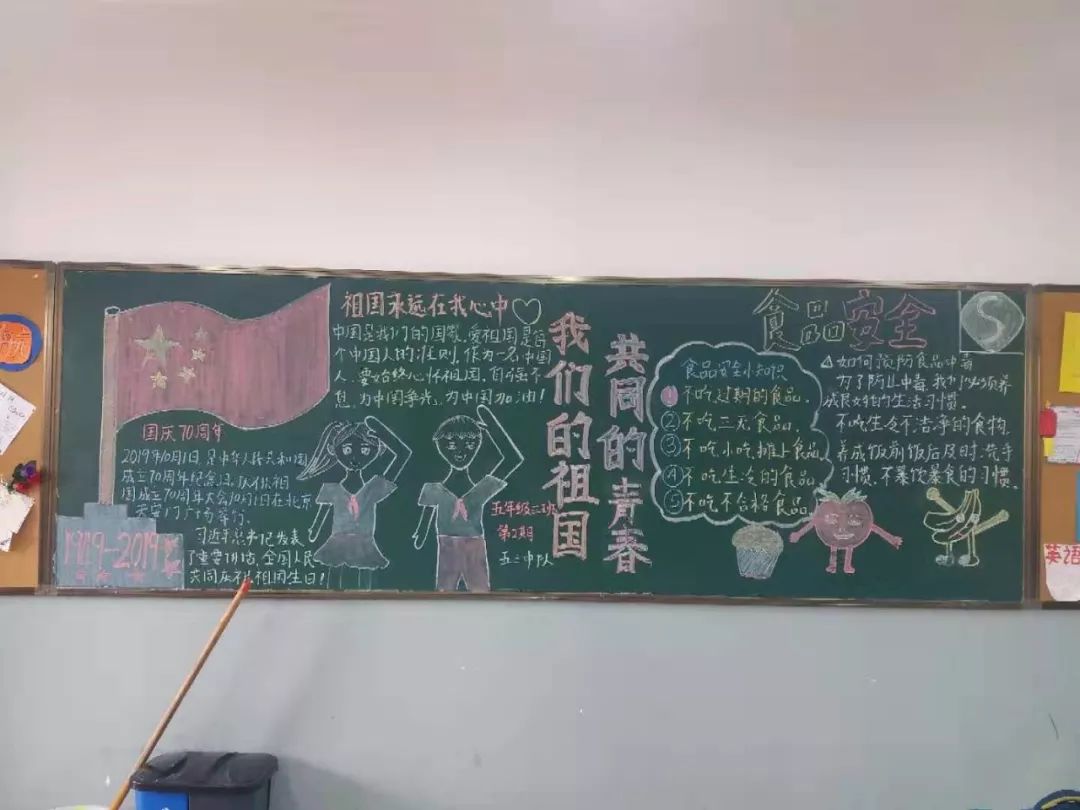 祖国永远在我心中
中国是我们的国家,爱祖国是每
个中国人的准则,作为一名中国
人,要始终心怀祖国,自强不
息,为中国争光,为中国加油!
国庆70周年
2019年10月1日,是中华人民共和国
成立70周年纪念日,庆祝祖
国成立70周年大会10月1日在北京
天安门广场举行。
习近平总书记发表
了重要讲话,全国人民
共同庆祝祖国生日!
1949-2019
五年级二班
第2期
五二中队
我们的祖国
共同的青春
食品安全
食品安全小知识
①不吃过期的食品。
②不吃三无食品。
③不吃小吃摊上食品
④不吃生冷的食品
⑤不吃不合格食品。
如何预防食品中毒
为了防止中毒,我们必须养
成良好的生活习惯。
不吃生冷不洁净的食物,
养成饭前饭后及时洗手
习惯,不暴饮暴食的习惯。
S
英语